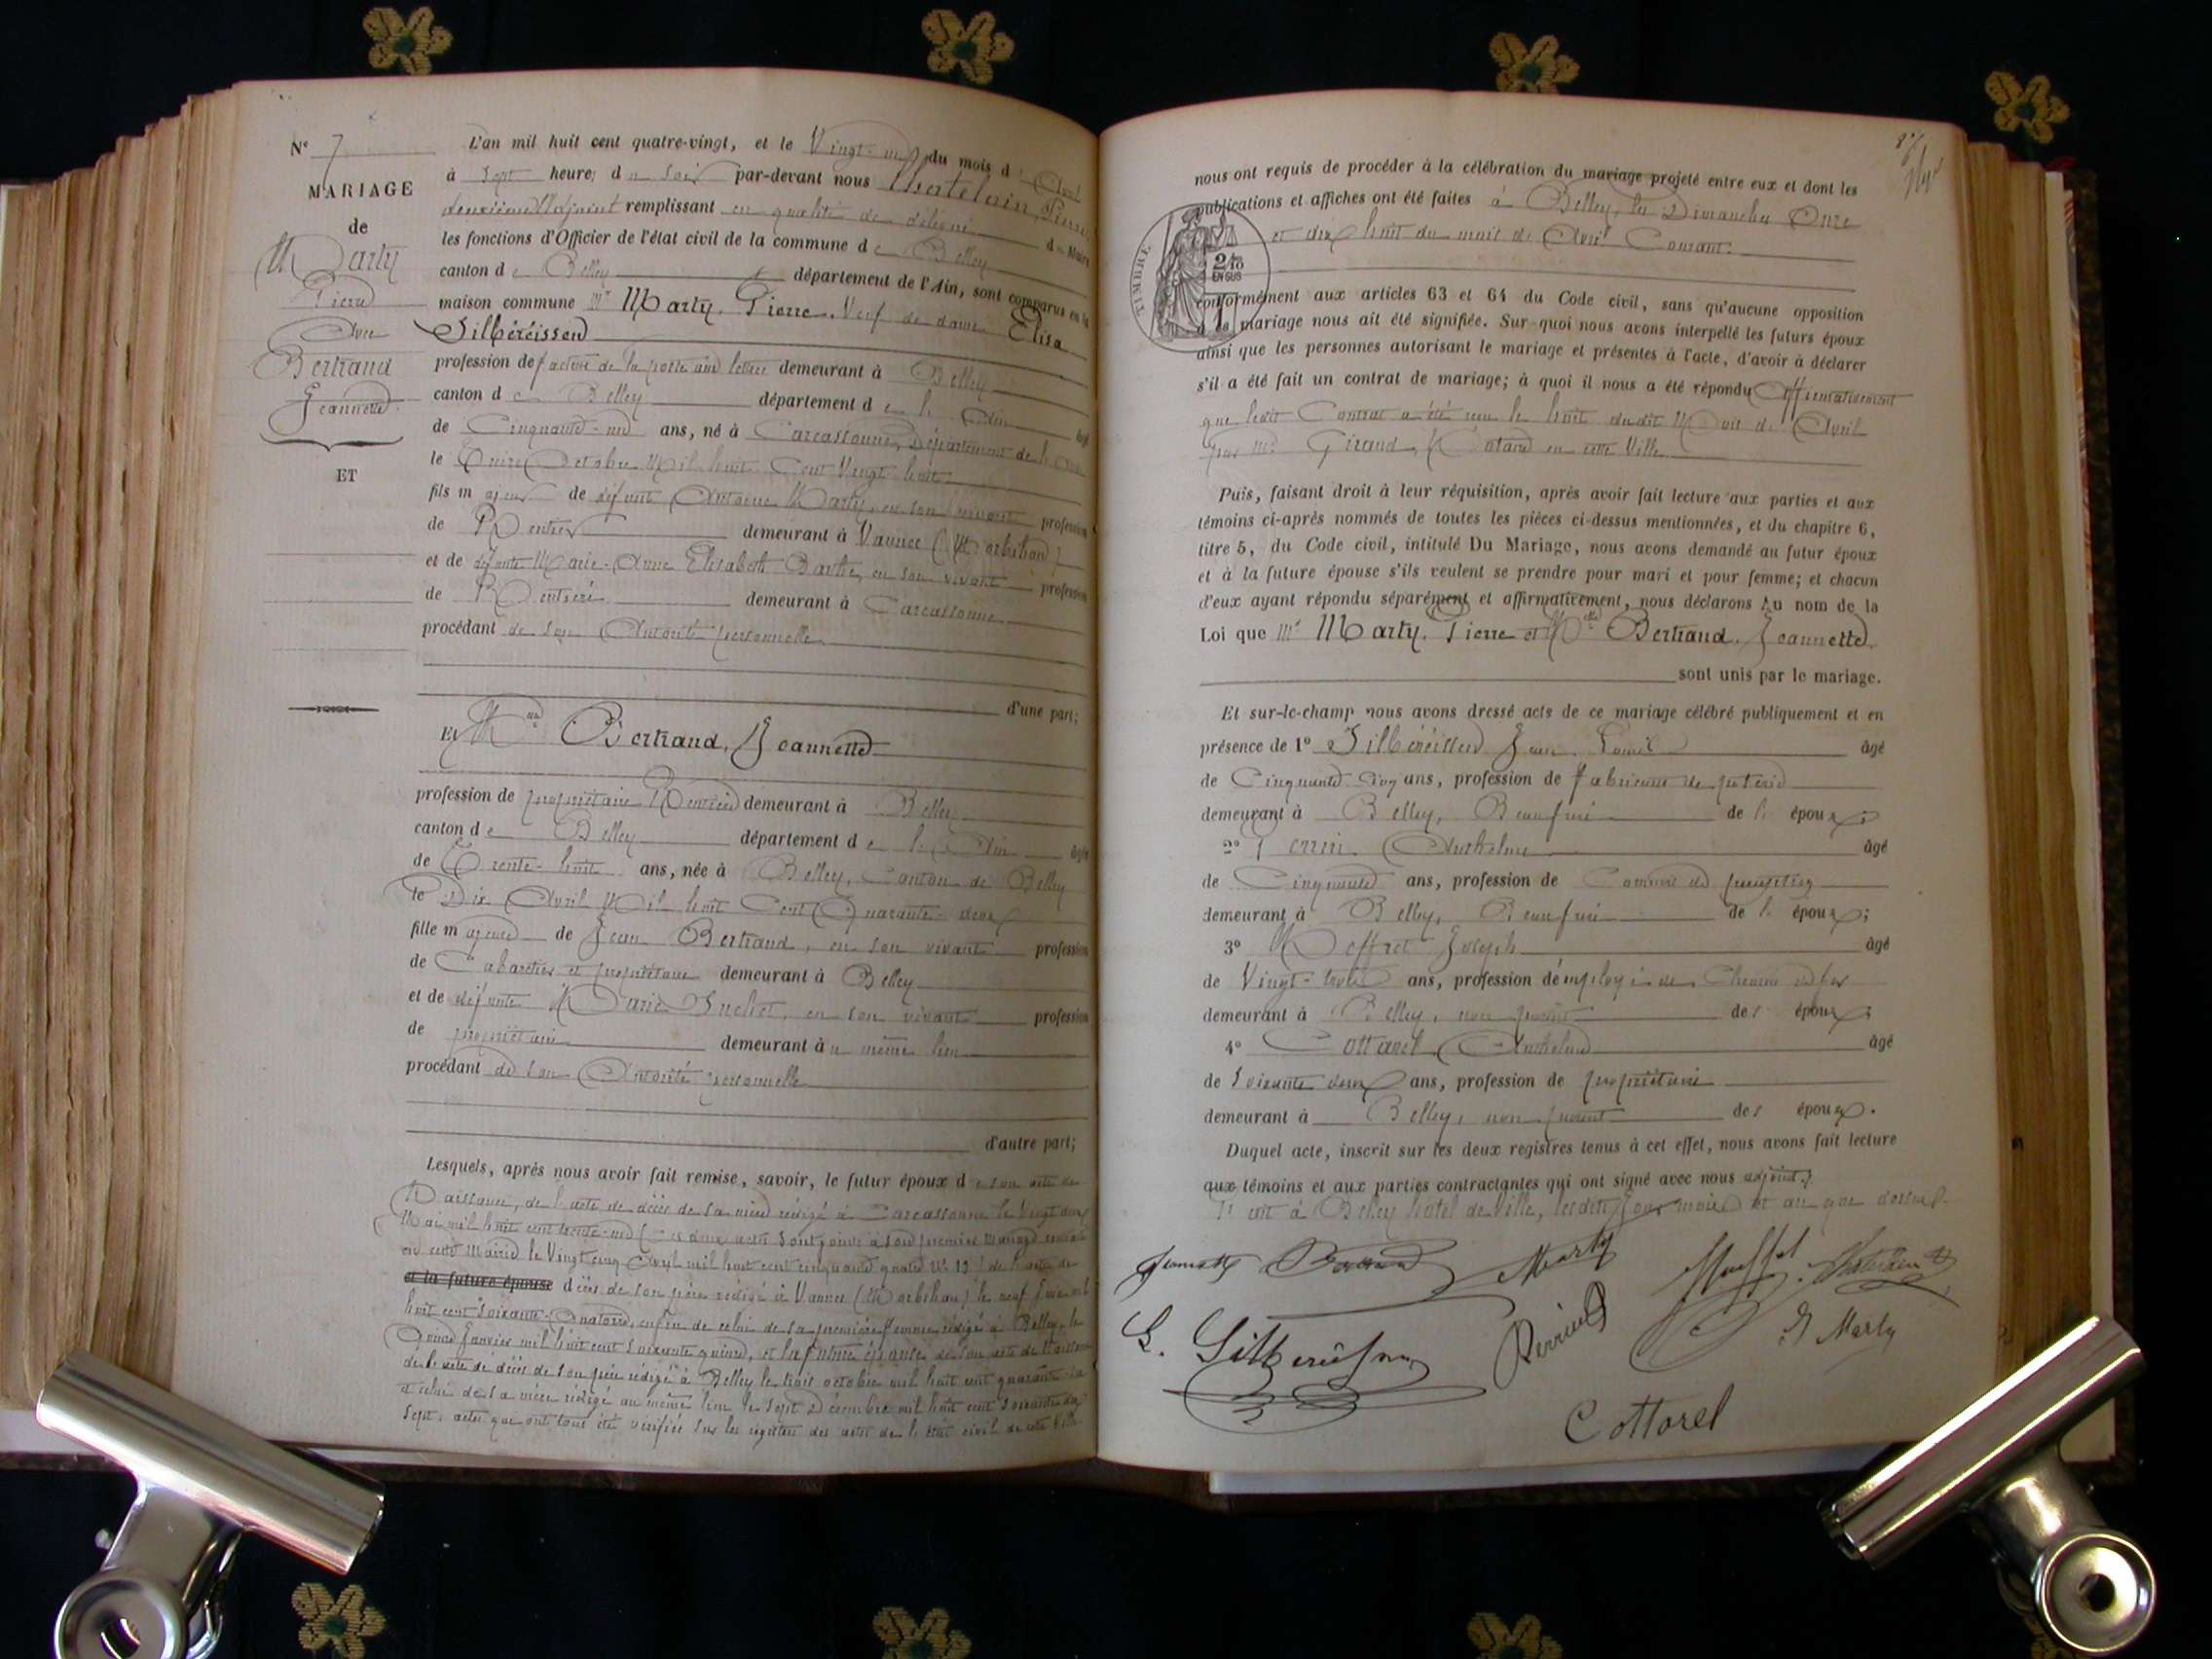 N° 7
MARIAGE
de
Marty
Pierre
Avec
Bertrand
Jeannette
ET
L'an mil huit cent quatre-vingt, et le Vingt-un du mois d' Avril
à Sept heures du soir par-devant nous Chatelain, Pierre
deuxième Adjoint remplissant en qualité de délégué du Maire
les fonctions d'Officier de l'état civil de la commune de Belley
canton de Belley département de l'Ain, sont comparus en la
maison commune Mr Marty, Pierre, Veuf de dame Elisa
Silbéreissen
profession de facteur de la poste aux lettres demeurant à Belley
canton de Belley département de l'Ain âgé
de Cinquante-un ans, né à Carcassonne, Département de l'Aude
le Octobre Mil huit Cent Vingt huit
fils majeur de défunt Antoine Marty, en son vivant profession
de Rentier demeurant à Vannes (Morbihan)
et de défunte Marie-Anne Elisabeth Barthe, en son vivant profession
de Rentière demeurant à Carcassonne
procédant de son Autorité personnelle
d'une part;
Et Bertrand, Jeannette
profession de propriétaire Rentière demeurant à Belley
canton de Belley département de l'Ain âgée
de Trente-huit ans, née à Belley, Canton de Belley
le Dix Avril Mil huit Cent Quarante-deux
fille majeure de Jean Bertrand, en son vivant profession
de Cabaretier et propriétaire demeurant à Belley
et de défunte Marie Suchet, en son vivant profession
de propriétaire demeurant au même lieu
procédant de son Autorité personnelle
d'autre part;
Lesquels, après nous avoir fait remise, savoir, le futur époux de son acte de
Naissance, de l'acte de décès de sa mère rédigé à Carcassonne le Vingt deux
Mai mil huit cent trente-un (ces deux actes sont joints à son premier mariage
en cette Mairie le Vingt cinq Avril mil huit cent cinquante quatre N° 12) de l'acte de
et la future épouse décès de son père rédigé à Vannes (Morbihan) le neuf mil
huit cent soixante-quatorze, enfin de celui de sa première femme rédigé à Belley, le
Quinze Janvier mil huit cent soixante quinze, et la future épouse de son acte de Naissance
de l'acte de décès de son père rédigé à Belley le trois octobre mil huit cent quarante-six
et celui de sa mère rédigé au même lieu le sept Décembre mil huit cent soixante dix
sept, actes qui ont tous été vérifiés sur les registres des actes de l'état civil de cette Ville
nous ont requis de procéder à la célébration du mariage projeté entre eux et dont les
publications et affiches ont été faites à Belley, les Dimanches Onze
et dix huit du mois de Avril Courant.
TIMBRE
2/10
EN SUS
conformément aux articles 63 et 64 du Code civil, sans qu'aucune opposition
à ce mariage nous ait été signifiée. Sur quoi nous avons interpellé les futurs époux
ainsi que les personnes autorisant le mariage et présentes à l'acte, d'avoir à déclarer
s'il a été fait un contrat de mariage; à quoi il nous a été répondu Affirmativement
que ledit Contrat a été reçu le huit dudit Mois de Avril
par Me Giraud, Notaire en cette Ville
Puis, faisant droit à leur réquisition, après avoir fait lecture aux parties et aux
témoins ci-après nommés de toutes les pièces ci-dessus mentionnées, et du chapitre 6,
titre 5, du Code civil, intitulé Du Mariage, nous avons demandé au futur époux
et à la future épouse s'ils veulent se prendre pour mari et pour femme; et chacun
d'eux ayant répondu séparément et affirmativement, nous déclarons Au nom de la
Loi que Mr Marty, Pierre et Bertrand, Jeannette
sont unis par le mariage.
Et sur-le-champ nous avons dressé acte de ce mariage célébré publiquement et en
présence de 1° Silbéreissen Jean Louis âgé
de Cinquante cinq ans, profession de fabricant de poterie
demeurant à Belley, Beaufrère de l' époux;
2° Perrin, Anthelme âgé
de Cinquante ans, profession de Commis de
demeurant à Belley, Beaufrère de l' époux;
3° Moffret Joseph âgé
de Vingt-trois ans, profession d'employé de Chemin de fer
demeurant à Belley, non parent des époux;
4° Cottarel Anthelme âgé
de Soixante deux ans, profession de propriétaire
demeurant à Belley, non parent des époux.
Duquel acte, inscrit sur les deux registres tenus à cet effet, nous avons fait lecture
aux témoins et aux parties contractantes qui ont signé avec nous adjoint.
Fait à Belley hotel de Ville, lesdits jour, mois et an que dessus.
Jeannette Bertrand Marty Moffret Chatelain
L. Silbereissen Perrin Marty
Cottarel